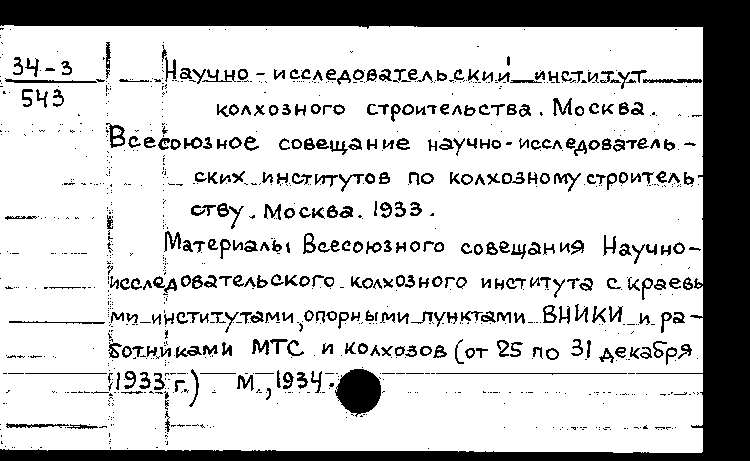 34-3
543
Научно-исследовательский институт
колхозного строительства. Москва.
Всесоюзное совещание научно-исследователь-
ских институтов по колхозному строитель-
ству. Москва. 1933.
Материалы Всесоюзного совещания Научно-
исследовательского колхозного института с краевы
ми институтами, опорными пунктами ВНИКИ и ра-
ботниками МТС и колхозов (от 25 по 31 декабря
1933 г.) М., 1934.